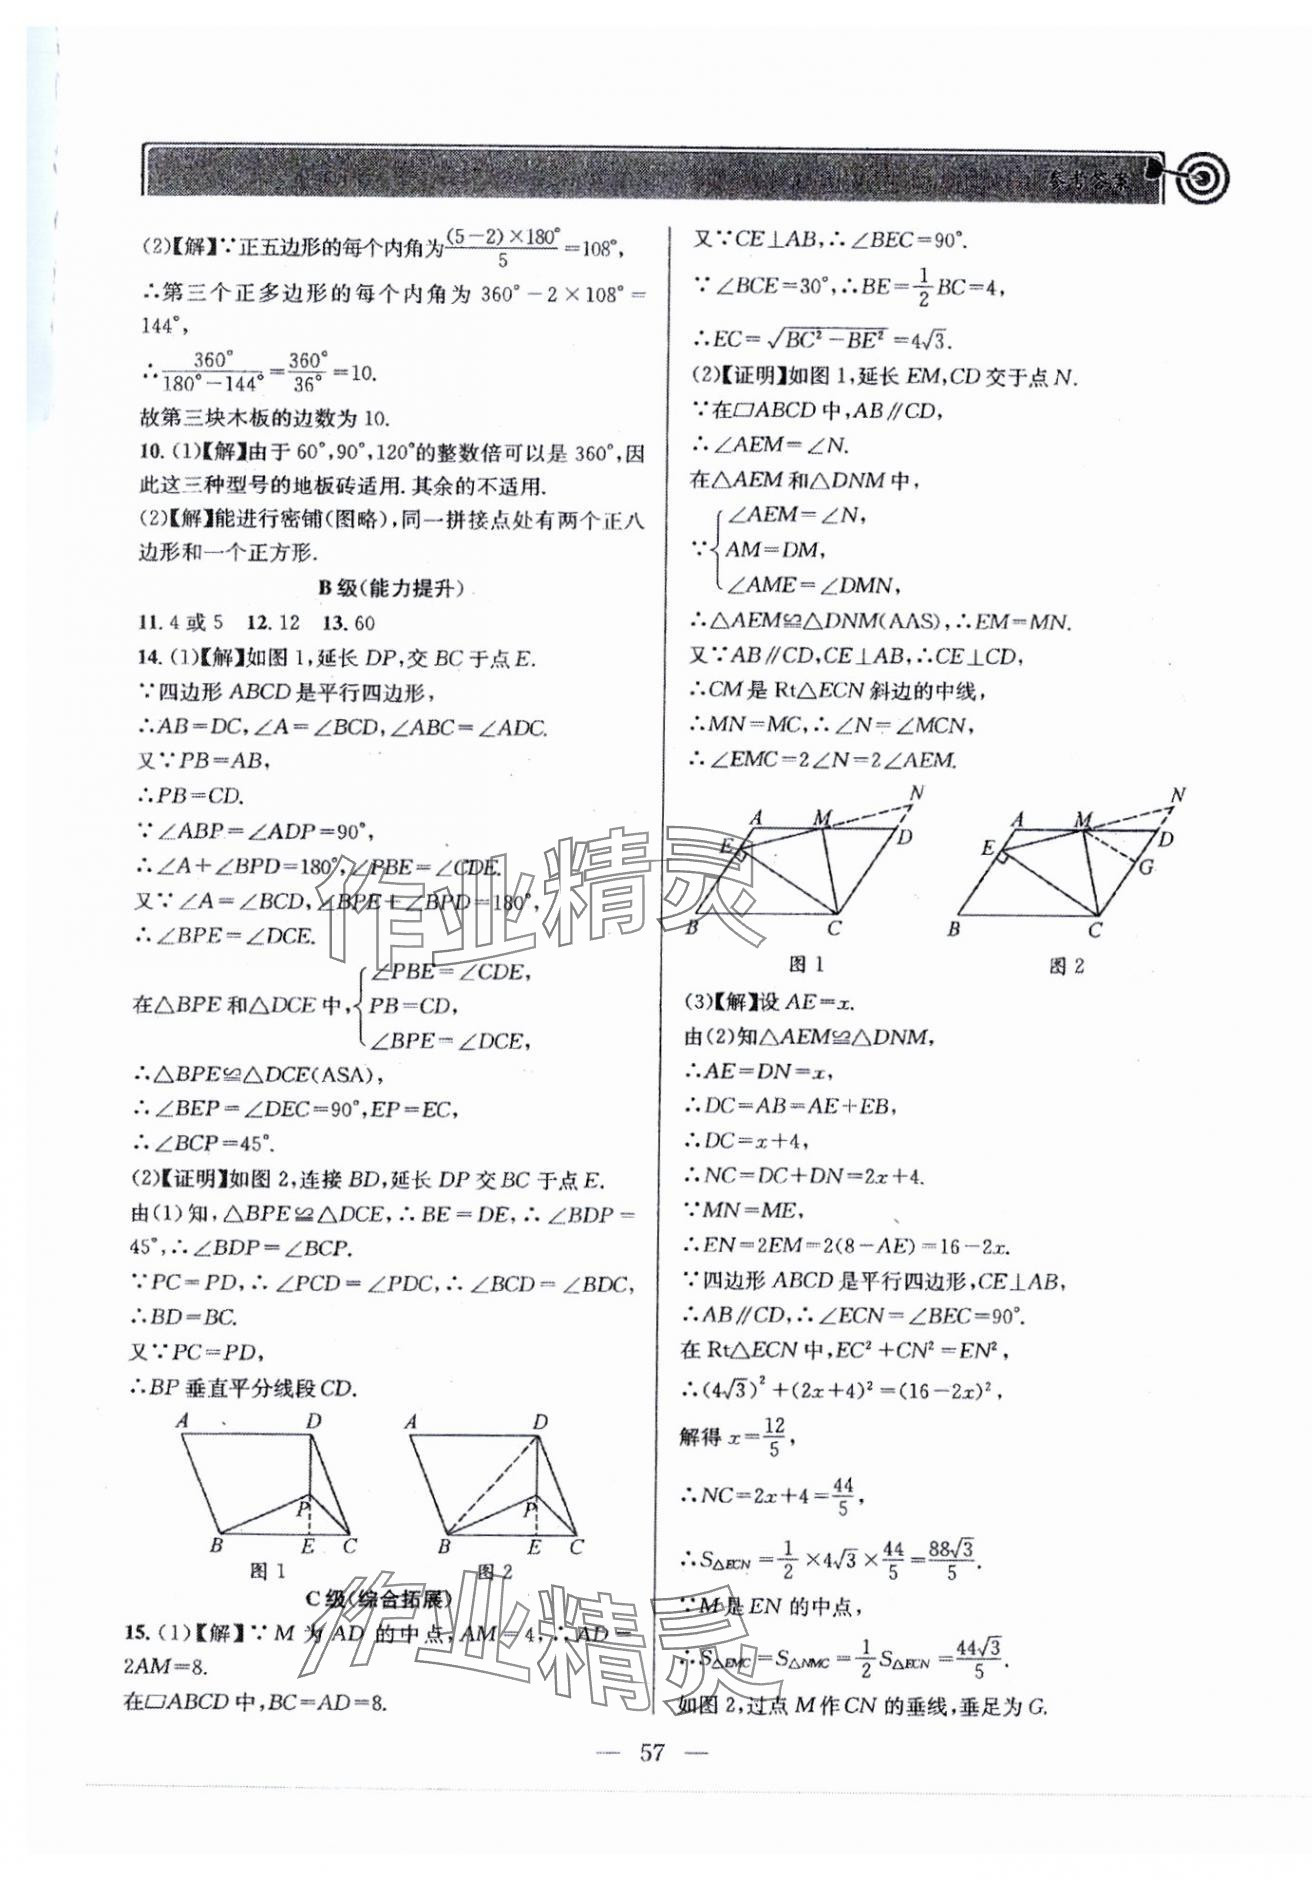 参考答案
(2)【解】∵正五边形的每个内角为\frac{(5-2)×180°}{5}=108°,
∴第三个正多边形的每个内角为 360°-2×108°=
144°,
∴\frac{360°}{180°-144°}=\frac{360°}{36°}=10.
故第三块木板的边数为 10.
10.(1)【解】由于 60°,90°,120°的整数倍可以是 360°,因
此这三种型号的地板砖适用.其余的不适用.
(2)【解】能进行密铺(图略),同一拼接点处有两个正八
边形和一个正方形.
B 级(能力提升)
11.4 或 5 12.12 13.60
14.(1)【解】如图 1,延长 DP,交 BC 于点 E.
∵四边形 ABCD 是平行四边形,
∴AB=DC,∠A=∠BCD,∠ABC=∠ADC.
又∵PB=AB,
∴PB=CD.
∵∠ABP=∠ADP=90°,
∴∠A+∠BPD=180°,∠PBE=∠CDE.
又∵∠A=∠BCD,∠BPE+∠BPD=180°,
∴∠BPE=∠DCE.
在△BPE 和△DCE 中,{∠PBE=∠CDE,
PB=CD,
∠BPE=∠DCE,
∴△BPE≌△DCE(ASA),
∴∠BEP=∠DEC=90°,EP=EC,
∴∠BCP=45°.
(2)【证明】如图 2,连接 BD,延长 DP 交 BC 于点 E.
由(1)知,△BPE≌△DCE,∴BE=DE,∴∠BDP=
45°,∴∠BDP=∠BCP.
∵PC=PD,∴∠PCD=∠PDC,∴∠BCD=∠BDC,
∴BD=BC.
又∵PC=PD,
∴BP 垂直平分线段 CD.
A D P B E C
图 1
A D P B E C
图 2
C 级(综合拓展)
15.(1)【解】∵M 为 AD 的中点,AM=4,∴AD=
2AM=8.
在▱ABCD 中,BC=AD=8.
又∵CE⊥AB,∴∠BEC=90°.
∵∠BCE=30°,∴BE=\frac{1}{2}BC=4,
∴EC=\sqrt{BC²-BE²}=4√3.
(2)【证明】如图 1,延长 EM,CD 交于点 N.
∵在▱ABCD 中,AB∥CD,
∴∠AEM=∠N.
在△AEM 和△DNM 中,
∵{∠AEM=∠N,
AM=DM,
∠AME=∠DMN,
∴△AEM≌△DNM(AAS),∴EM=MN.
又∵AB∥CD,CE⊥AB,∴CE⊥CD,
∴CM 是 Rt△ECN 斜边的中线,
∴MN=MC,∴∠N=∠MCN,
∴∠EMC=2∠N=2∠AEM.
A M N D E B C
图 1
A M N D E G B C
图 2
(3)【解】设 AE=x.
由(2)知△AEM≌△DNM,
∴AE=DN=x,
∴DC=AB=AE+EB,
∴DC=x+4,
∴NC=DC+DN=2x+4.
∵MN=ME,
∴EN=2EM=2(8-AE)=16-2x.
∵四边形 ABCD 是平行四边形,CE⊥AB,
∴AB∥CD,∴∠ECN=∠BEC=90°.
在 Rt△ECN 中,EC²+CN²=EN²,
∴(4√3)²+(2x+4)²=(16-2x)²,
解得 x=\frac{12}{5},
∴NC=2x+4=\frac{44}{5},
∴S△ECN=\frac{1}{2}×4√3×\frac{44}{5}=\frac{88√3}{5}.
∵M 是 EN 的中点,
∴S△EMC=S△NMC=\frac{1}{2}S△ECN=\frac{44√3}{5}.
如图 2,过点 M 作 CN 的垂线,垂足为 G.
— 57 —
作业精灵
作业精灵